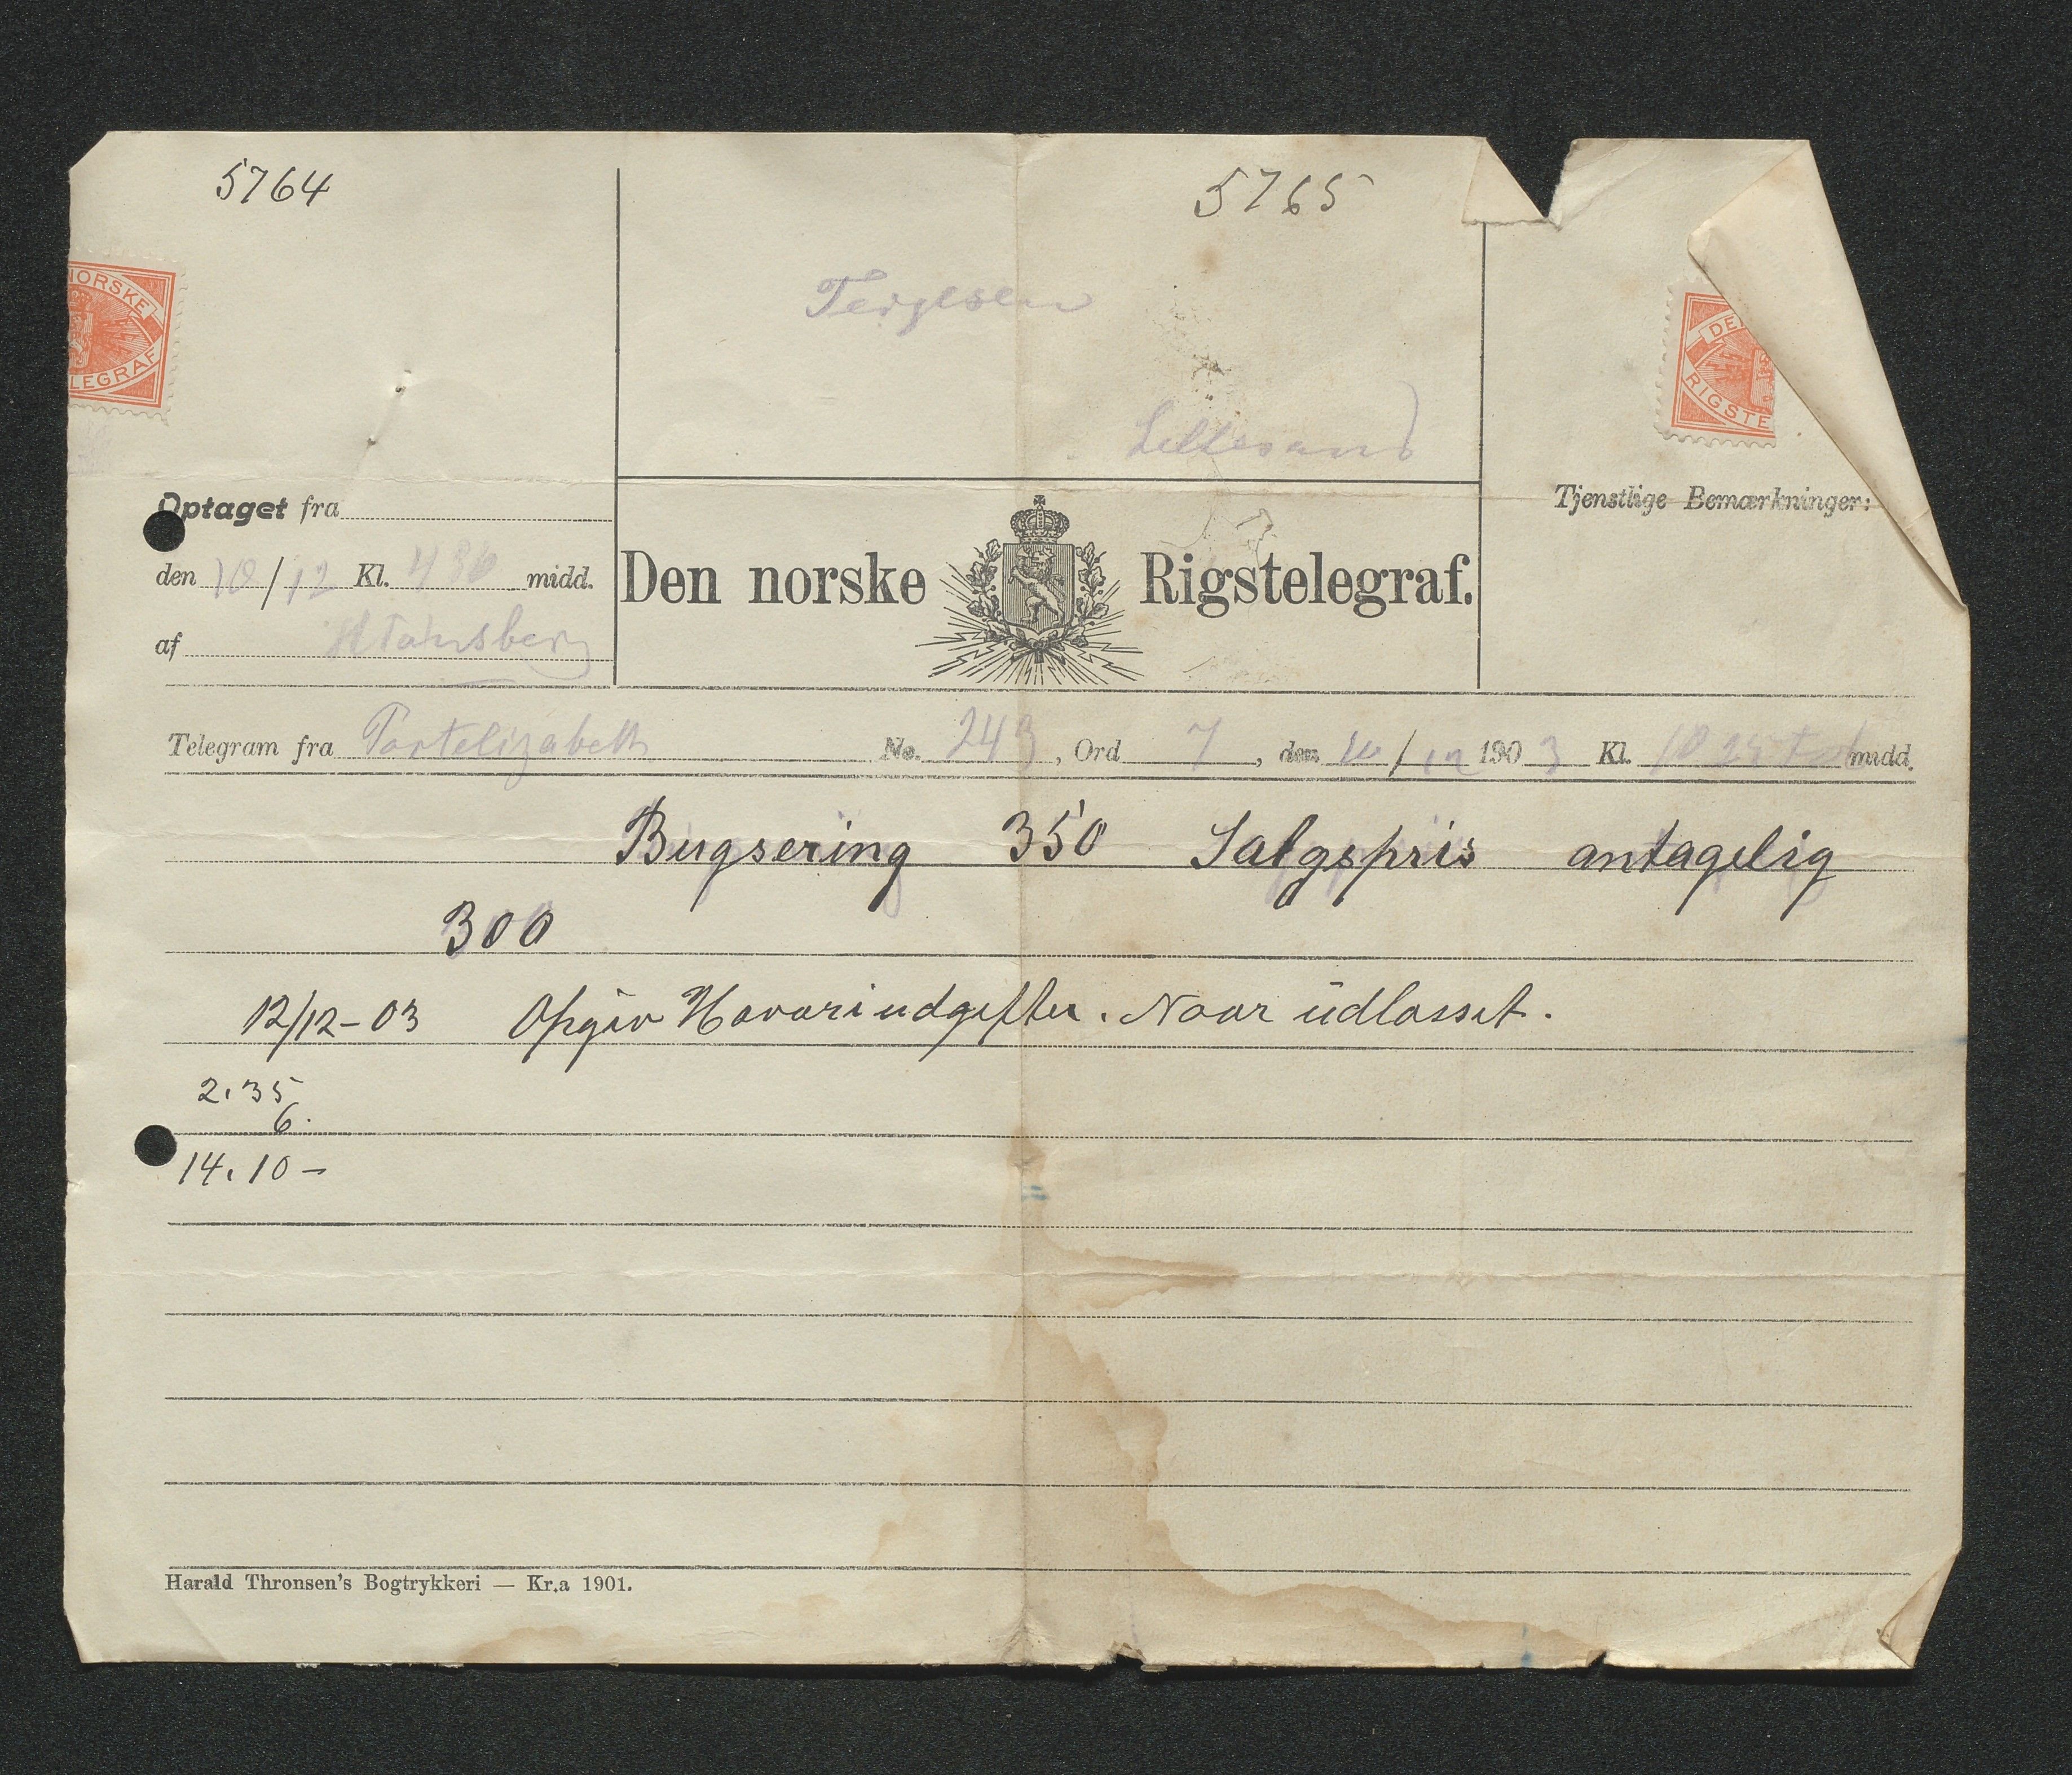 5764
5765
NORSKE
LEGRAF
DE
RIGSTE
Terjesen
Lillesand
Optaget fra
den 10/12 Kl. 4 36 midd.
af
Tjenstlige Bemærkninger:
Den norske Rigstelegraf.
Telegram fra Portelizabeth No. 243, Ord 7, den 10/12 1903 Kl. 10 25 midd.
Bugsering 350 Salgspris antagelig
300
12/12-03 Opgiv Havariudgifter. Naar udlosset.
2.35
6.
14.10 –
Harald Thronsen's Bogtrykkeri — Kr.a 1901.